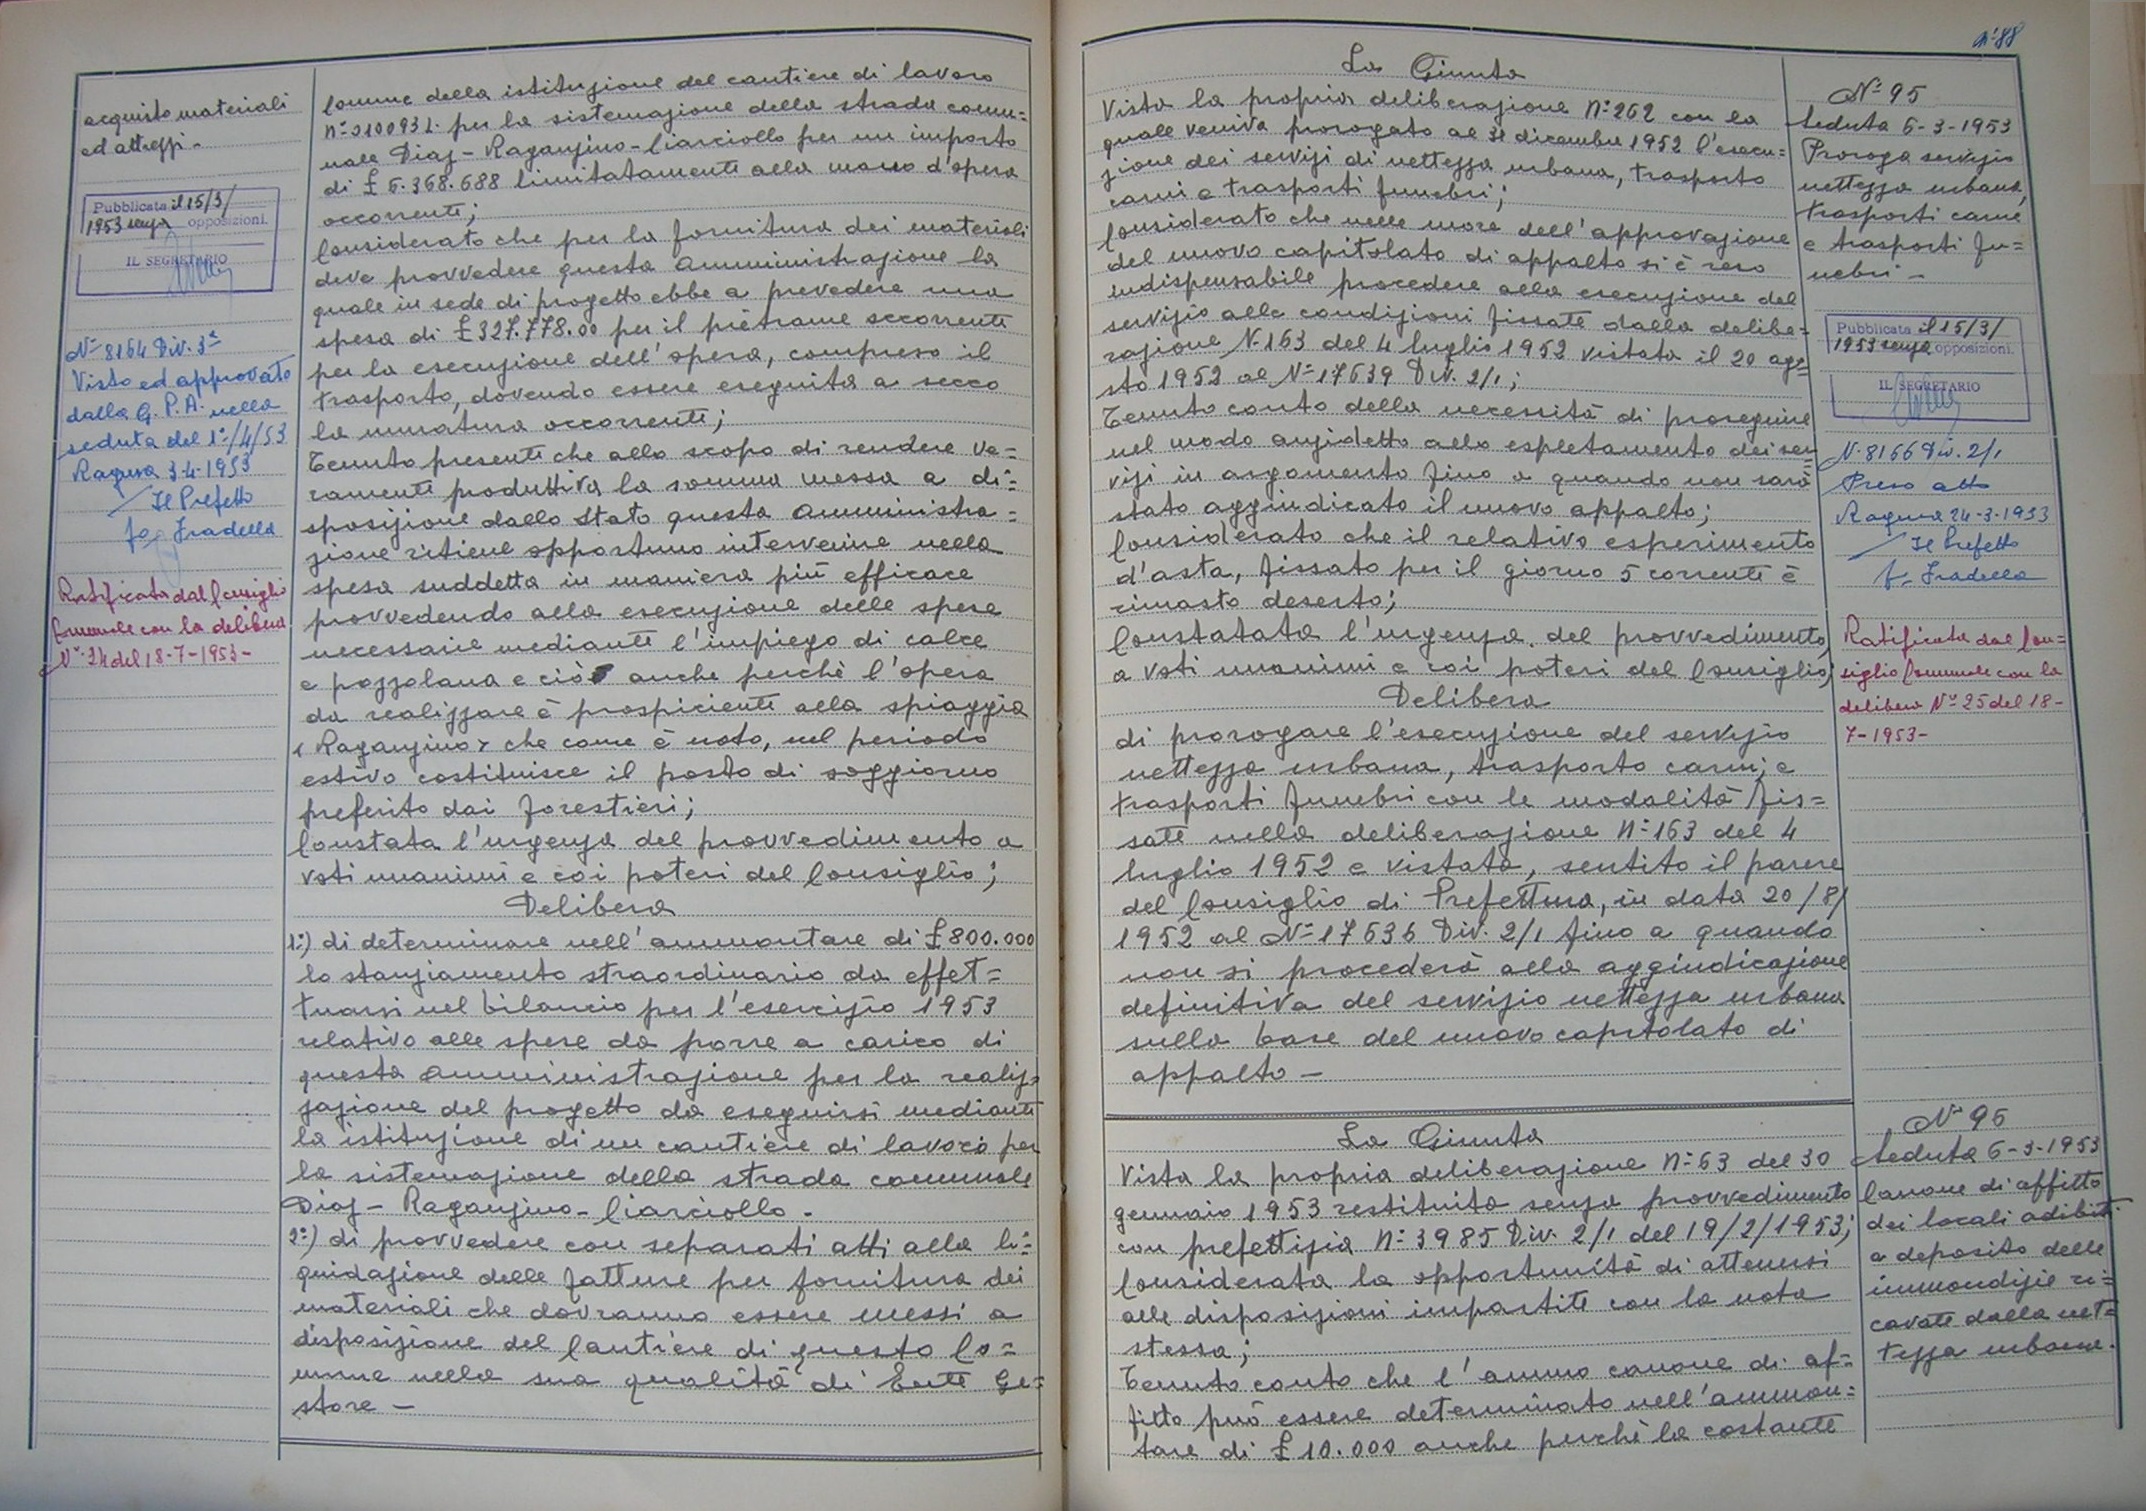 acquisto materiali
ed attrezzi -
Pubblicata il 15/3/
1953 senza opposizioni.
IL SEGRETARIO
N° 8164 Div. 3ª
Visto ed approvato
dalla G. P. A. nella
seduta del 1°/4/53
Ragusa 3-4-1953
Il Prefetto
Fradella
Ratificata dal Consiglio
Comunale con la delibera
N° 24 del 18-7-1953-
Comune della istituzione del cantiere di lavoro
N° 0100931. per la sistemazione della strada comu=
nale Diaz - Raganzino - Ciarciollo per un importo
di £ 6.368.688 limitatamente alla mano d'opera
occorrente;
Considerato che per la fornitura dei materiali
deve provvedere questa Amministrazione la
quale in sede di progetto ebbe a prevedere una
spesa di £ 327.778.00 per il pietrame occorrente
per la esecuzione dell'opera, compreso il
trasporto, dovendo essere eseguita a secco
la muratura occorrente;
Tenuto presente che allo scopo di rendere ve=
ramente produttiva la somma messa a di=
sposizione dallo Stato questa Amministra=
zione ritiene opportuno intervenire nella
spesa suddetta in maniera più efficace
provvedendo alla esecuzione delle spese
necessarie mediante l'impiego di calce
e pozzolana e ciò anche perchè l'opera
da realizzare è prospiciente alla spiaggia
"Raganzino" che come è noto, nel periodo
estivo costituisce il posto di soggiorno
preferito dai forestieri;
Constata l'urgenza del provvedimento a
voti unanimi e coi poteri del Consiglio;
Delibera
1°) di determinare nell'ammontare di £ 800.000
lo stanziamento straordinario da effet=
tuarsi nel bilancio per l'esercizio 1953
relativo alle spese da porre a carico di
questa amministrazione per la realiz=
zazione del progetto da eseguirsi mediante
la istituzione di un cantiere di lavoro per
la sistemazione della strada comunale
Diaz - Raganzino - Ciarciollo.
2°) di provvedere con separati atti alla li=
quidazione delle fatture per fornitura dei
materiali che dovranno essere messi a
disposizione del Cantiere di questo Co=
mune nella sua qualità di Ente Ge=
store -
N° 88
La Giunta
Vista la propria deliberazione N° 262 con la
quale veniva prorogato al 31 dicembre 1952 l'esecu=
zione dei servizi di nettezza urbana, trasporto
carni e trasporti funebri;
Considerato che nelle more dell'approvazione
del nuovo capitolato di appalto si è reso
indispensabile procedere alla esecuzione del
servizio alle condizioni fissate dalla delibe=
razione N. 163 del 4 luglio 1952 vistata il 20 ago=
sto 1952 al N° 17639 Div. 2/1;
Tenuto conto della necessità di proseguire
nel modo anzidetto allo espletamento dei ser=
vizi in argomento fino a quando non sarà
stato aggiudicato il nuovo appalto;
Considerato che il relativo esperimento
d'asta, fissato per il giorno 5 corrente è
rimasto deserto;
Constatata l'urgenza del provvedimento,
a voti unanimi e coi poteri del Consiglio;
Delibera
di prorogare l'esecuzione del servizio
nettezza urbana, trasporto carni; e
trasporti funebri con le modalità fis=
sate nella deliberazione N° 163 del 4
luglio 1952 e vistata, sentito il parere
del Consiglio di Prefettura, in data 20/8/
1952 al N° 17636 Div. 2/1 fino a quando
non si procederà alla aggiudicazione
definitiva del servizio nettezza urbana
sulla base del nuovo capitolato di
appalto -
La Giunta
Vista la propria deliberazione N° 63 del 30
gennaio 1953 restituita senza provvedimento
con prefettizia N° 3985 Div. 2/1 del 19/2/1953;
Considerata la opportunità di attenersi
alle disposizioni impartite con la nota
stessa;
Tenuto conto che l'annuo canone di af=
fitto può essere determinato nell'ammon=
tare di £ 10.000 anche perchè la costante
N° 95
Seduta 6-3-1953
Proroga servizio
nettezza urbana,
trasporti carne
e trasporti fu=
nebri -
Pubblicata il 15/3/
1953 senza opposizioni.
IL SEGRETARIO
N. 8166 Div. 2/1
Preso atto
Ragusa 24-3-1953
Il Prefetto
Fradella
Ratificata dal Con=
siglio Comunale con la
delibera N° 25 del 18-
7-1953-
N° 96
Seduta 6-3-1953
Canone di affitto
dei locali adibiti
a deposito delle
immondizie ri=
cavate dalla net=
tezza urbana.